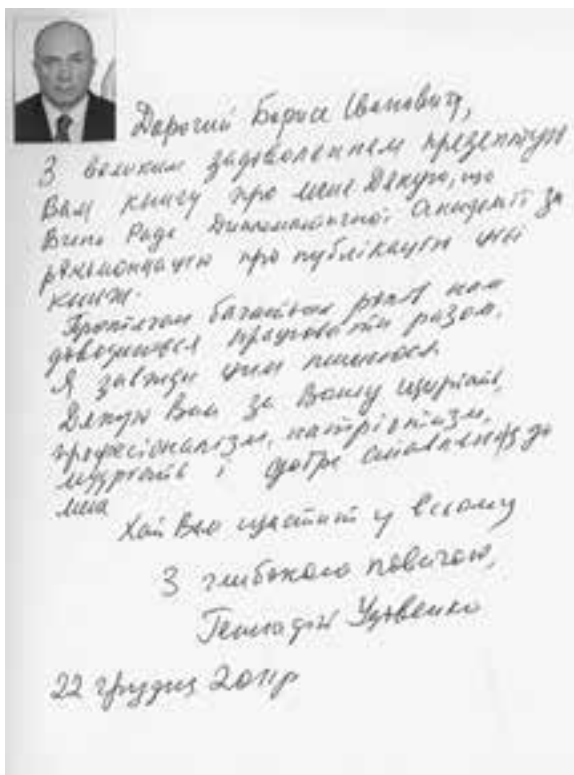 Дорогий Борисе Івановичу,
З великим задоволенням презентую
Вам книгу про мене. Дякую, що
Вченій Раді Дипломатичної Академії за
рекомендацію про публікацію цієї
книги.
Протягом багатьох років нам
доводилося працювати разом.
Я завжди цим пишаюся.
Дякую Вам за Вашу щирість,
професіоналізм, патріотизм,
мудрість і добре ставлення до
мене
Хай Вам щастить у всьому
З глибокою повагою,
Геннадій Удовенко
22 грудня 2011р